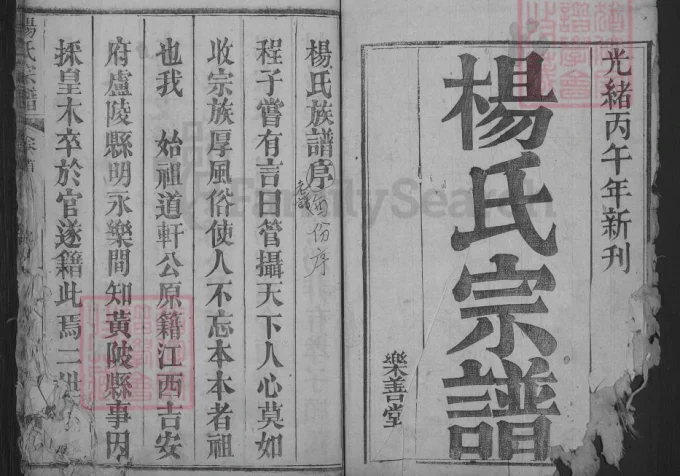 光緒丙午年新刊
楊氏宗譜
樂善堂
楊氏族譜序
份序
程子嘗有言曰管攝天下人心莫如
收宗族厚風俗使人不忘本本者祖
也我 始祖道軒公原籍江西吉安
府廬陵縣明永樂間知黃陂縣事因
採皇木卒於官遂籍此焉二世
楊氏宗譜
FamilySearch